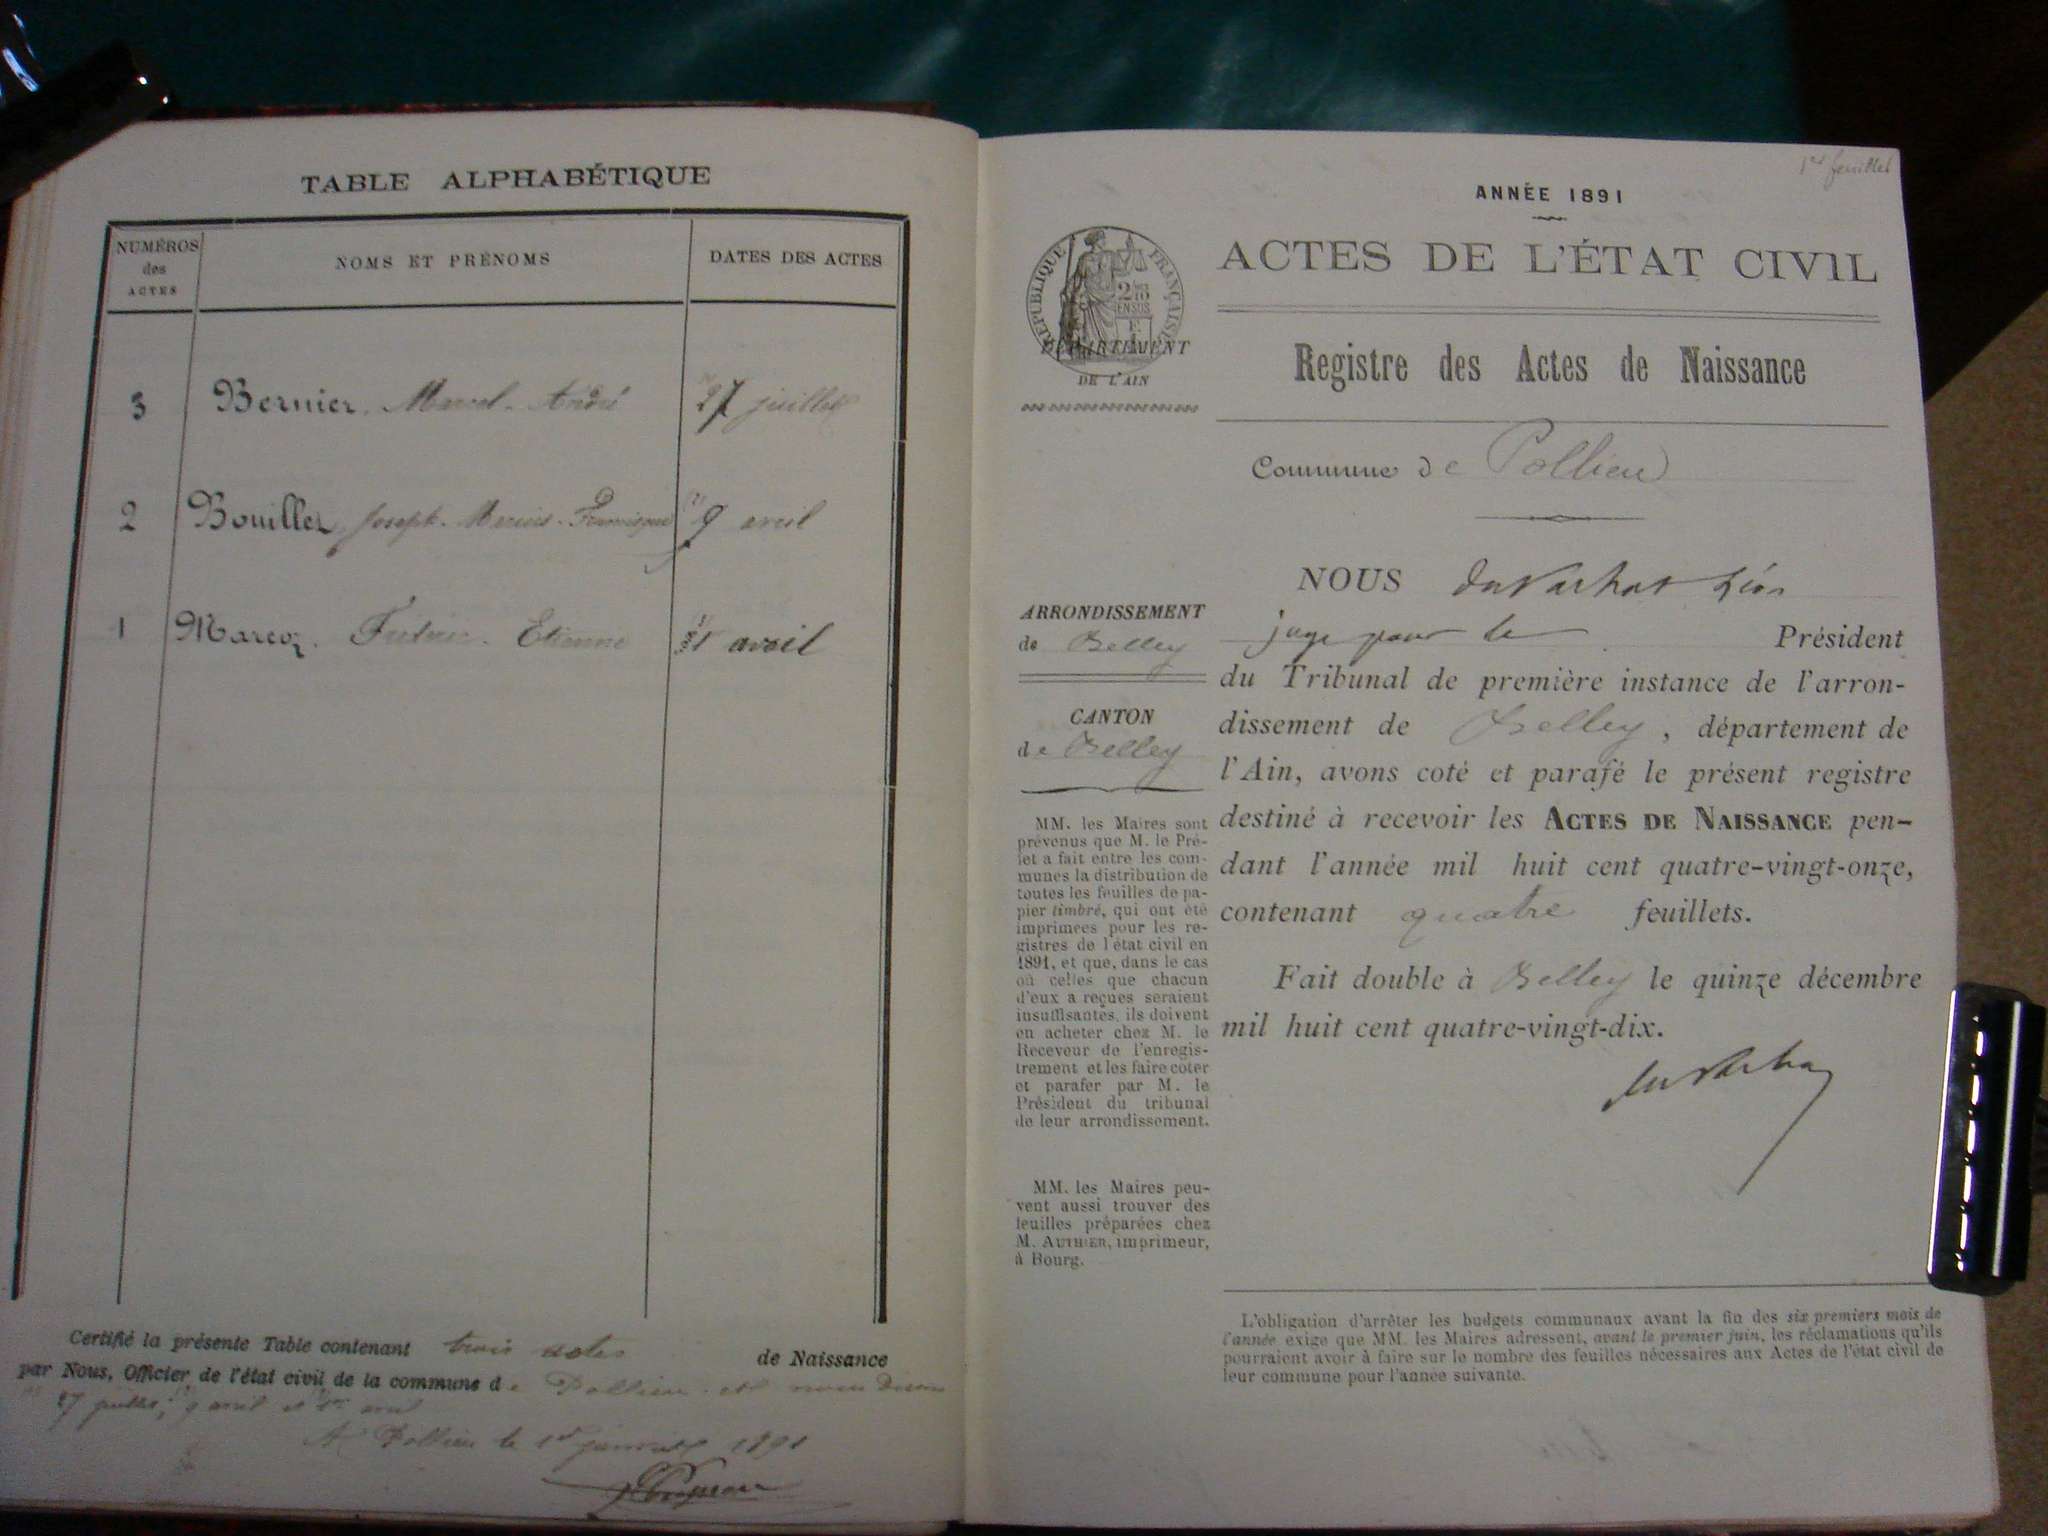 TABLE ALPHABÉTIQUE
NUMÉROS
des
ACTES
NOMS ET PRÉNOMS
DATES DES ACTES
3 Bernier, Marcel-André 27 juillet
2 Bouillet, Joseph-Marius-Francisque 9 avril
1 Marcoz. Etienne avril
Certifié la présente Table contenant trois actes de Naissance
par Nous, Officier de l'état civil de la commune de Pollieu et nous disons
27 juillet; 9 avril et 1er avril
A Pollieu le 1er janvier 1891
1er feuillet
ANNÉE 1891
RÉPUBLIQUE FRANÇAISE
2/10
EN SUS
DÉPARTEMENT
DE L'AIN
ACTES DE L'ÉTAT CIVIL
Registre des Actes de Naissance
Commune de Pollieu
ARRONDISSEMENT
de Belley
CANTON
de Belley
MM. les Maires sont
prévenus que M. le Pré-
fet a fait entre les com-
munes la distribution de
toutes les feuilles de pa-
pier timbré, qui ont été
imprimées pour les re-
gistres de l'état civil en
1891, et que, dans le cas
où celles que chacun
d'eux a reçues seraient
insuffisantes, ils doivent
en acheter chez M. le
Receveur de l'enregis-
trement et les faire coter
et parafer par M. le
Président du tribunal
de leur arrondissement.
MM. les Maires peu-
vent aussi trouver des
feuilles préparées chez
M. AUTHIER, imprimeur,
à Bourg.
NOUS Léon
juge pour le Président
du Tribunal de première instance de l'arron-
dissement de Belley, département de
l'Ain, avons coté et parafé le présent registre
destiné à recevoir les ACTES DE NAISSANCE pen-
dant l'année mil huit cent quatre-vingt-onze,
contenant quatre feuillets.
Fait double à Belley le quinze décembre
mil huit cent quatre-vingt-dix.
L'obligation d'arrêter les budgets communaux avant la fin des six premiers mois de
l'année exige que MM. les Maires adressent, avant le premier juin, les réclamations qu'ils
pourraient avoir à faire sur le nombre des feuilles nécessaires aux Actes de l'état civil de
leur commune pour l'année suivante.